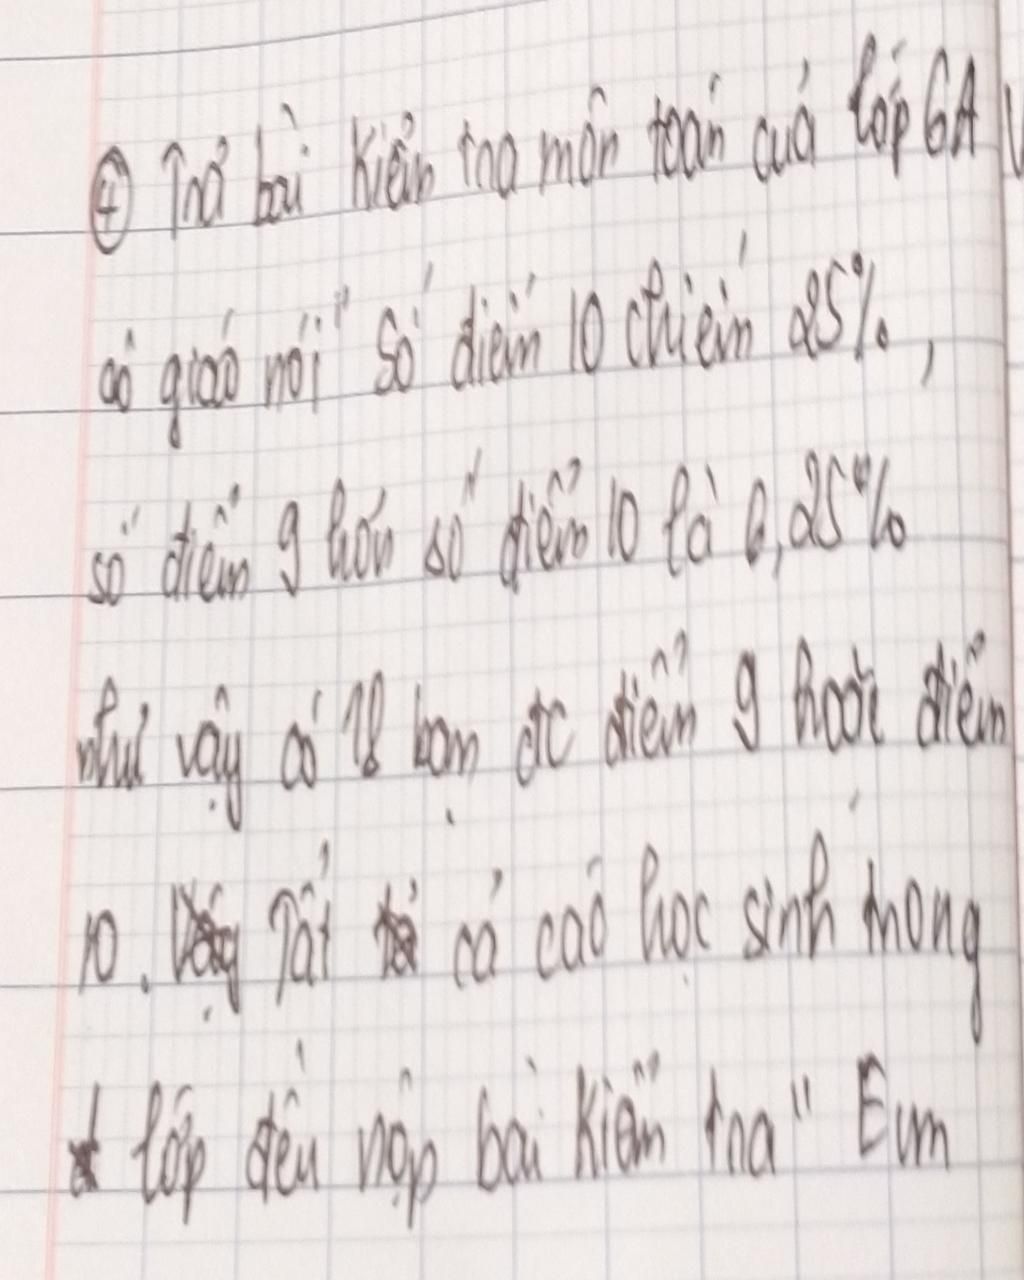 ④ Trả bài kiểm tra môn toán cuả lớp 6A
cô giáo nói " Số điểm 10 chiếm 25%,
số điểm 9 hơn số điểm 10 là 6,25%
như vậy có 18 bạn đc điểm 9 hoặc điểm
10. Tất cả các học sinh trong
lớp đều nộp bài kiểm tra" Em